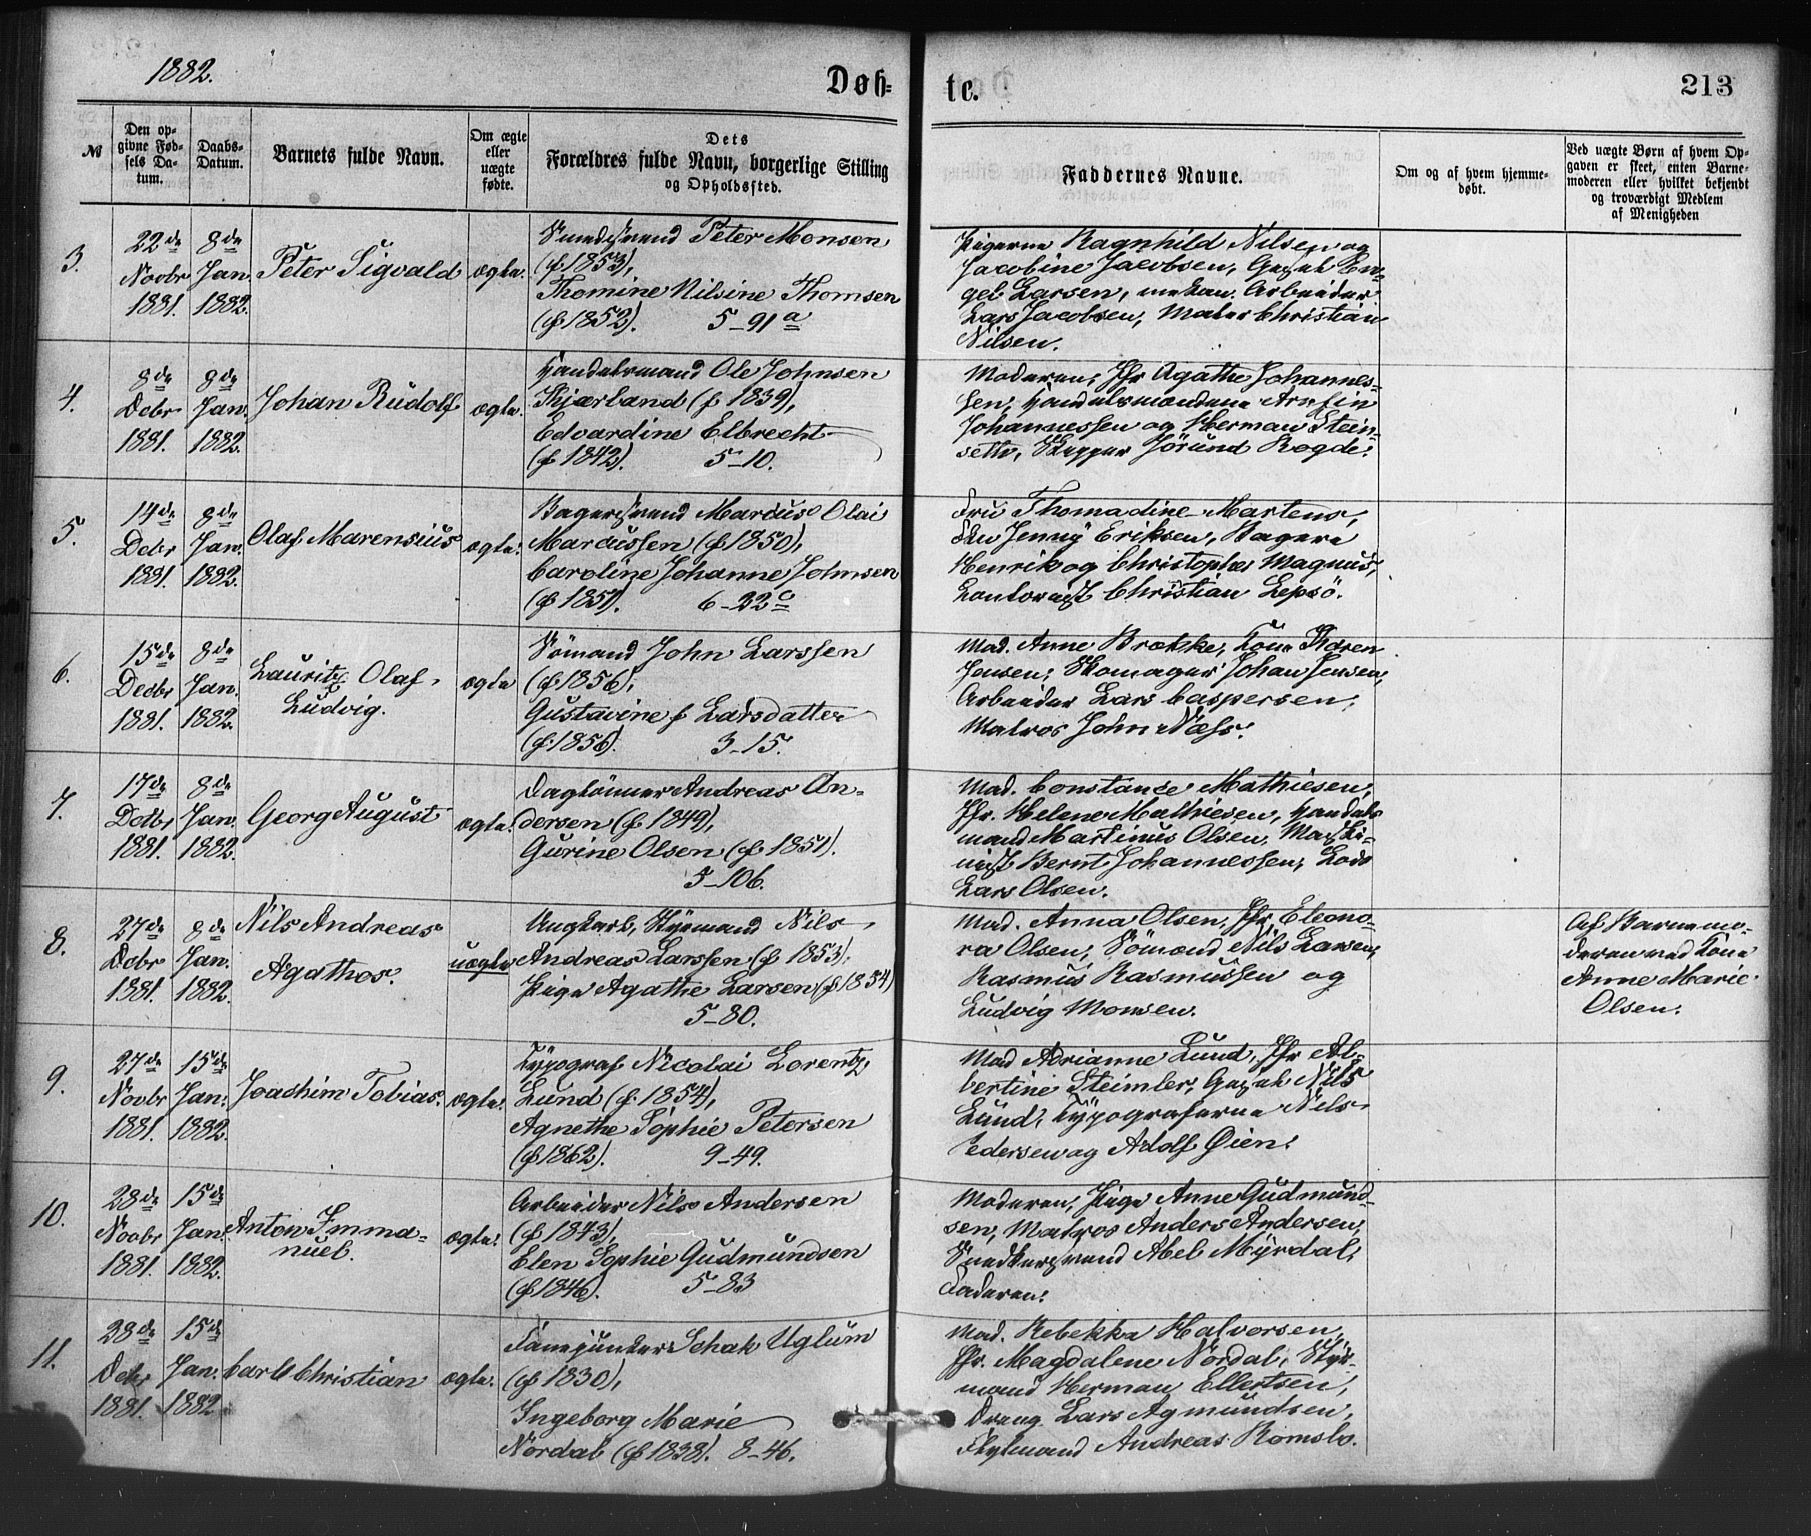 1882.
Døb=
te.
213
№
Den op-
givne Fød-
sels Da-
tum.
Daabs-
Datum.
Barnets fulde Navn.
Om ægte
eller
uægte
fødte.
Dets
Forældres fulde Navn, borgerlige Stilling
og Opholdssted.
Faddernes Navne.
Om og af hvem hjemme-
døbt.
Ved uægte Børn af hvem Op-
gaven er skeet, enten Barne-
moderen eller hvilket bekjendt
og troværdigt Medlem
af Menigheden
3.
22de
Novbr
1881.
8de
Jan.
1882.
Peter Sigvald
ægte.
Peter Monsen
(f 1853),
Thomine Nilsine Thomsen
(f 1852). 5-91a
Pigerne Ragnhild Nilsen og
Jacobine Jacobsen, Gaselle En-
gel Larsen, mekan. Arbeider
Lars Jacobsen, Maler Christian
Nilsen.
4.
8de
Debr
1881.
8de
Jan.
1882.
Johan Rudolf
ægte.
Handelsmand Ole Johnsen
Kjærland (f 1839),
Edvardine Elbrecht
(f 1842). 5-10.
Moderen, Jfr Agathe Johannes-
sen, Handelsmændene Arnfin
Johannessen og Herman Stein-
setlv, Skipper Jörund Rogde.
5.
14de
Debr
1881.
8de
Jan.
1882.
Olaf Marensius
ægte.
Bagersvend Marcus Olai
Marcussen (f 1850),
Caroline Johanne Johnsen
(f 1857). 6-22c
Fru Thomadine Martens,
Frk Jenny Eriksen, Bagere
Henrik og Christopher Magnus,
Kontorist Christian Lepsö.
6.
15de
Decbr
1881.
8de
Jan.
1882.
Lauritz Olaf
Ludvig.
ægte
Sömand John Larssen
(f 1856),
Gustavine f Larsdatter
(f. 1856). 3-15.
Mad. Anne Brække, Kone Thoren
Jensen, Skomager Johan Jensen,
Arbeider Lars Caspersen,
Matros John Næss.
7.
17de
Detbr
1881.
8de
Jan.
1882.
Georg August
ægte.
Daglönner Andreas An-
dersen (f 1849),
Gurine Olsen (f 1857).
5-106.
Mad. Constance Mathiesen,
Jfr. Helene Mathiesen, Handels
mand Martinus Olsen, Maski-
nist Bernt Johannessen, Lods
Lars Olsen.
8.
27de
Debr
1881.
8de
Jan.
1882.
Nils Andreas
Agathos.
uægte
Ungkarl, Styrmand Nils
Andreas Larssen (f 1853),
Pige Agathe Larsen (f 1854)
5-80.
Mad. Anna Olsen, Jfr Eleono-
ra Olsen, Sömand Nils Larsen,
Rasmus Rasmussen og
Ludvig Monsen.
Af Barnemo-
deren ved Kone
Anne Marie
Olsen.
9.
27de
Novbr
1881.
15de
Jan.
1882.
Joachim Tobias.
ægte.
Typograf Nicolai Lorentz
Lund (f. 1854),
Agnethe Sophie Petersen
(f 1862). 9-49.
Mad Adrianne Lund, Jfr Al-
bertine Steimler, Nils
Lund, Typograferne Nils
Pedersen og Adolf Øien.
10.
28de
Novbr
1881.
15de
Jan.
1882.
Anton Imma-
nuel.
ægte.
Arbeider Nils Andersen
(f 1843),
Elen Sophie Gudmundsen
(f 1846). 5-83
Moderen, Pige Anne Gudmund-
sen, Matros Anders Andersen,
Snedkersvend Abel Myrdal,
Faderen.
11.
28de
Debr
1881.
15de
Jan.
1882
Carl Christian
ægte.
Fanejunker Schak Uglum
(f 1830),
Ingeborg Marie
Nordal (f 1838). 8-46.
Mad. Rebekka Halvorsen,
Jfr. Magdalene Nordal, Styr-
mand Herman Ellertsen,
Dreng Lars Agmundsen,
Andreas Romslo.